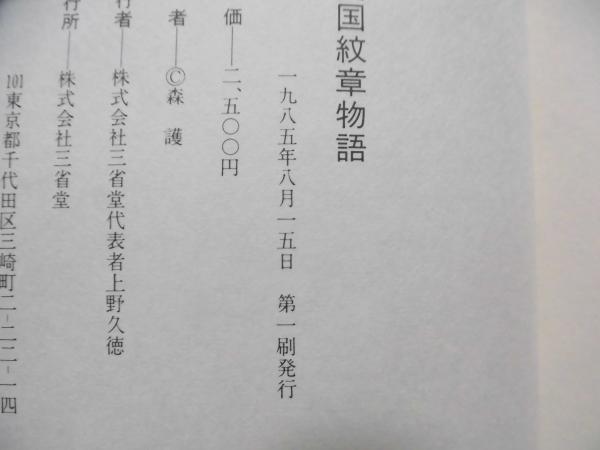 国紋章物語
一九八五年八月一五日　第一刷発行
価――二、五〇〇円
者――©森　護
行者――株式会社三省堂代表者上野久徳
行所――株式会社三省堂
101東京都千代田区三崎町二-二二-一四